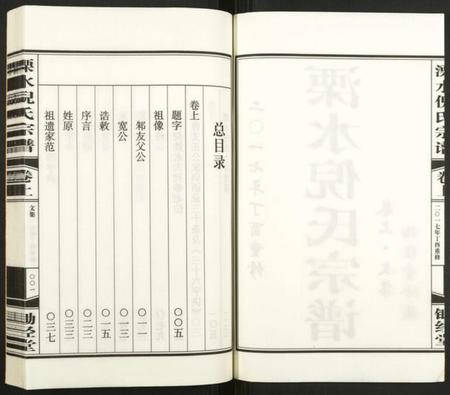 总目录
卷上
题字 〇〇五
祖像
邾友父公 〇一一
宽公 〇一二
诰敕 〇一五
序言 〇二三
姓原 〇三三
祖遗家范 〇三七
溧水倪氏宗谱
卷上
文集
〇〇一
锄经堂
溧水倪氏宗谱
卷上
二〇一七年丁酉重修
锄经堂
溧水倪氏宗谱
二〇一七年丁酉重修